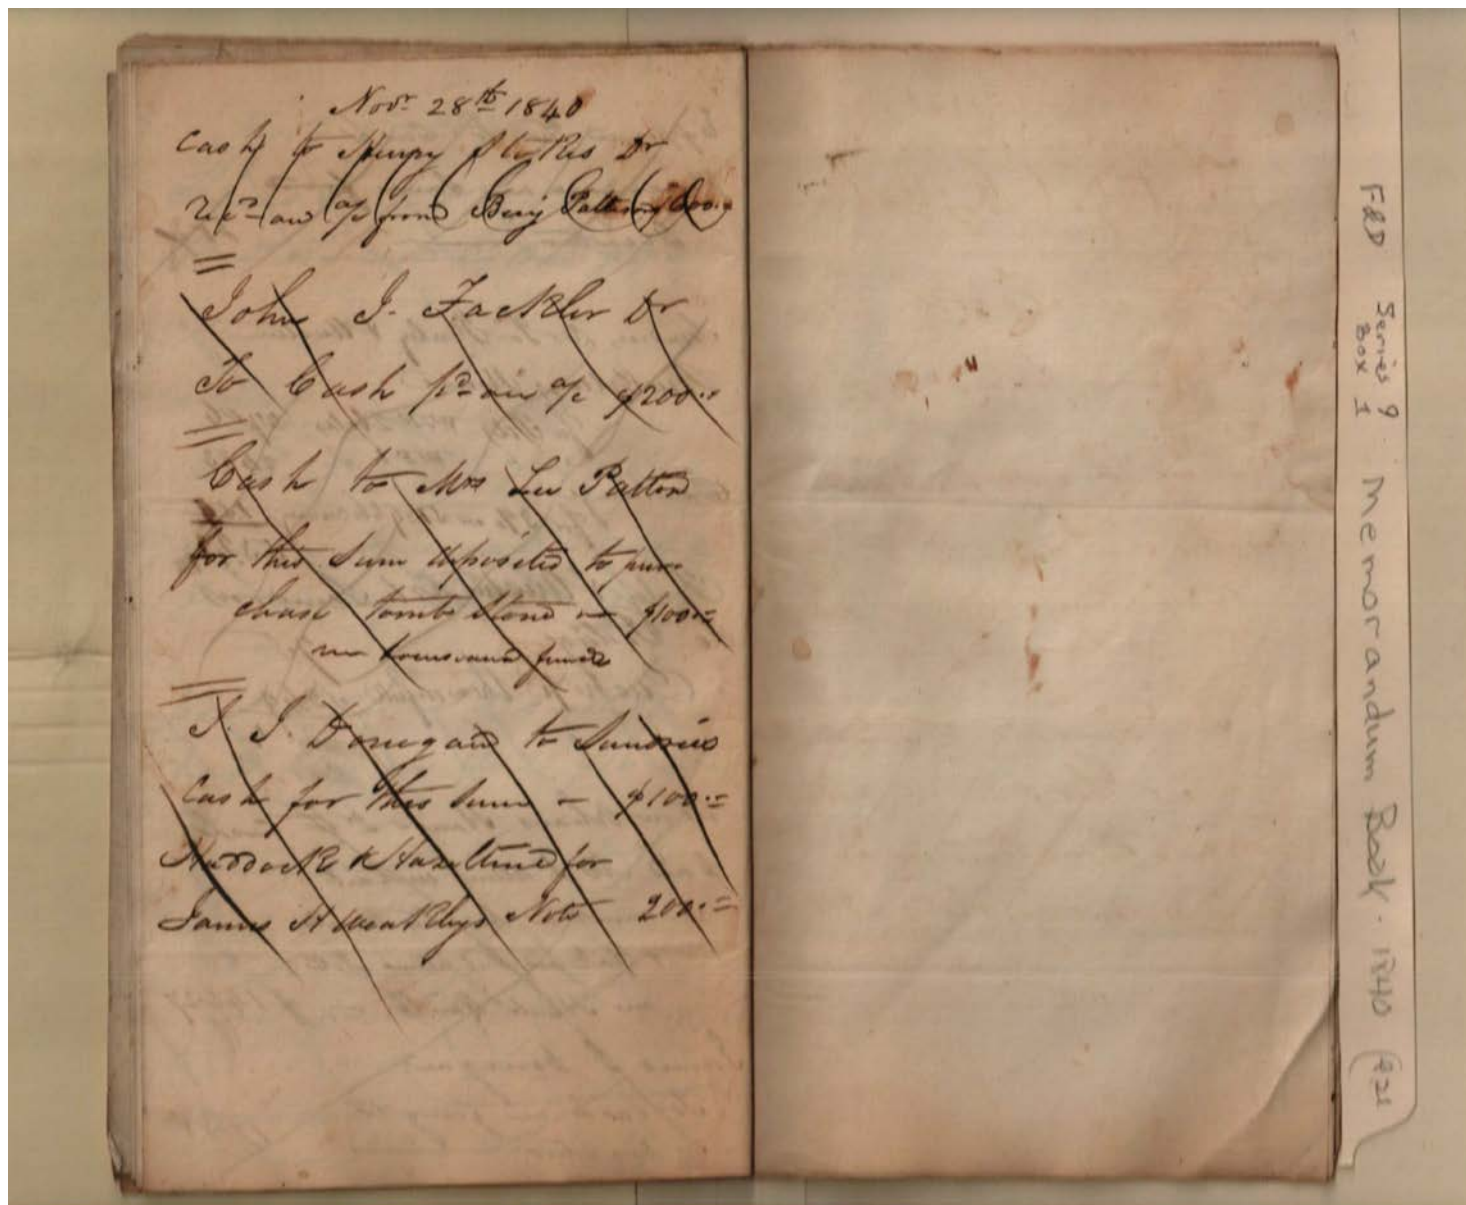 Novr 28th 1840
Cash to Henry Stokes Dr
Recd on a/c from Benj Patteson $600..
John J. Fackler Dr
To Cash pd on a/c $200..
Cash to Mrs Lee Patton
for this Sum deposited to pur
chase tomb Stone – $100..
funds
J. J. Donegan to Sundries
Cash for this Sum – $100..
Haddock & Hazeltine for
James H Weakleys Note 200..
F&D Series 9
Box 1
Memorandum Book - 1840